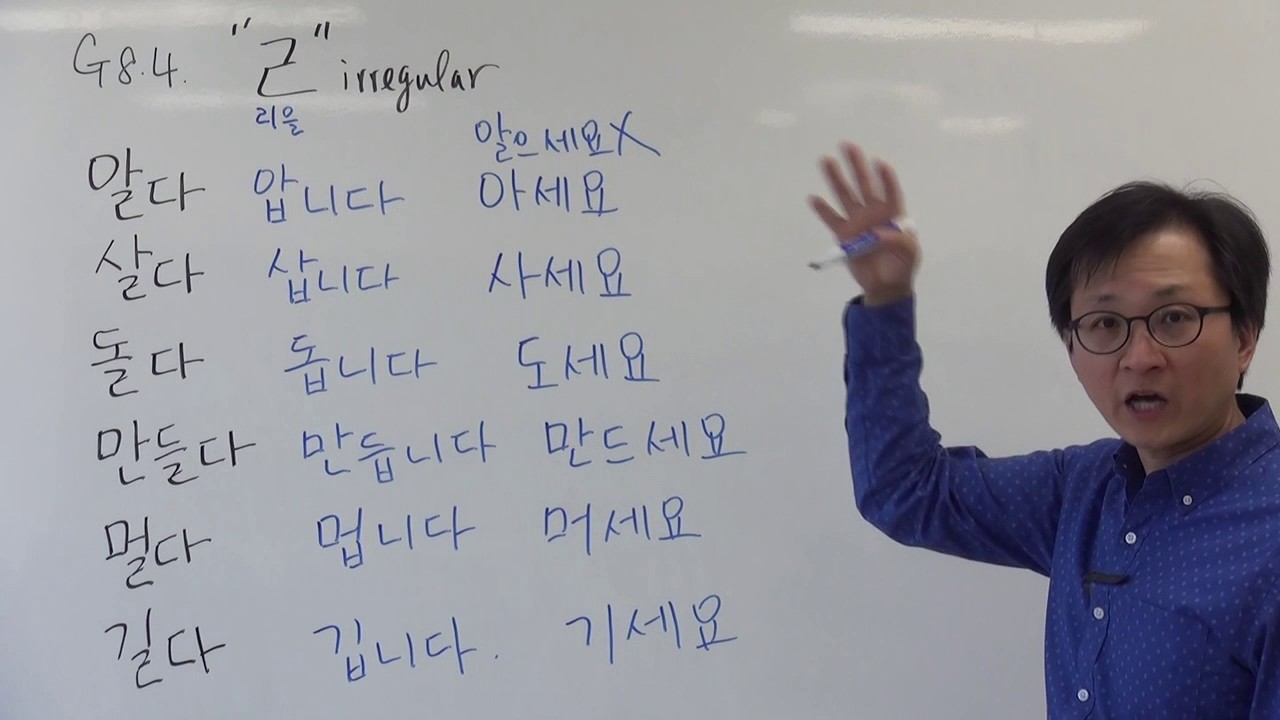 G8.4. "ㄹ" irregular
리을
알으세요X
알다 압니다 아세요
살다 삽니다 사세요
돌다 돕니다 도세요
만들다 만듭니다 만드세요
멀다 멉니다 머세요
길다 깁니다. 기세요